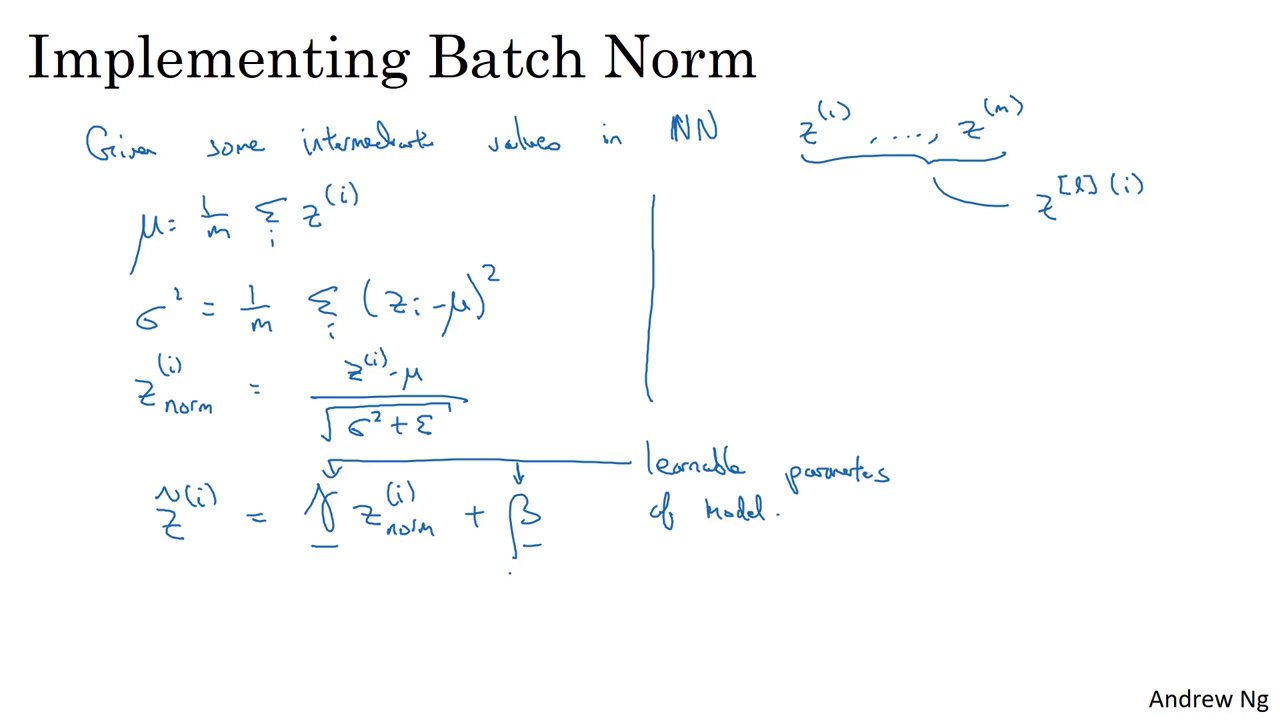 Implementing Batch Norm
Given some intermediate values in NN z^(i), ..., z^(m)
z^[l](i)
μ = 1/m Σ_i z^(i)
σ² = 1/m Σ_i (z_i - μ)²
z^(i)_norm = (z^(i) - μ) / √(σ² + ε)
z̃^(i) = γ z^(i)_norm + β
learnable parameters
of model.
Andrew Ng